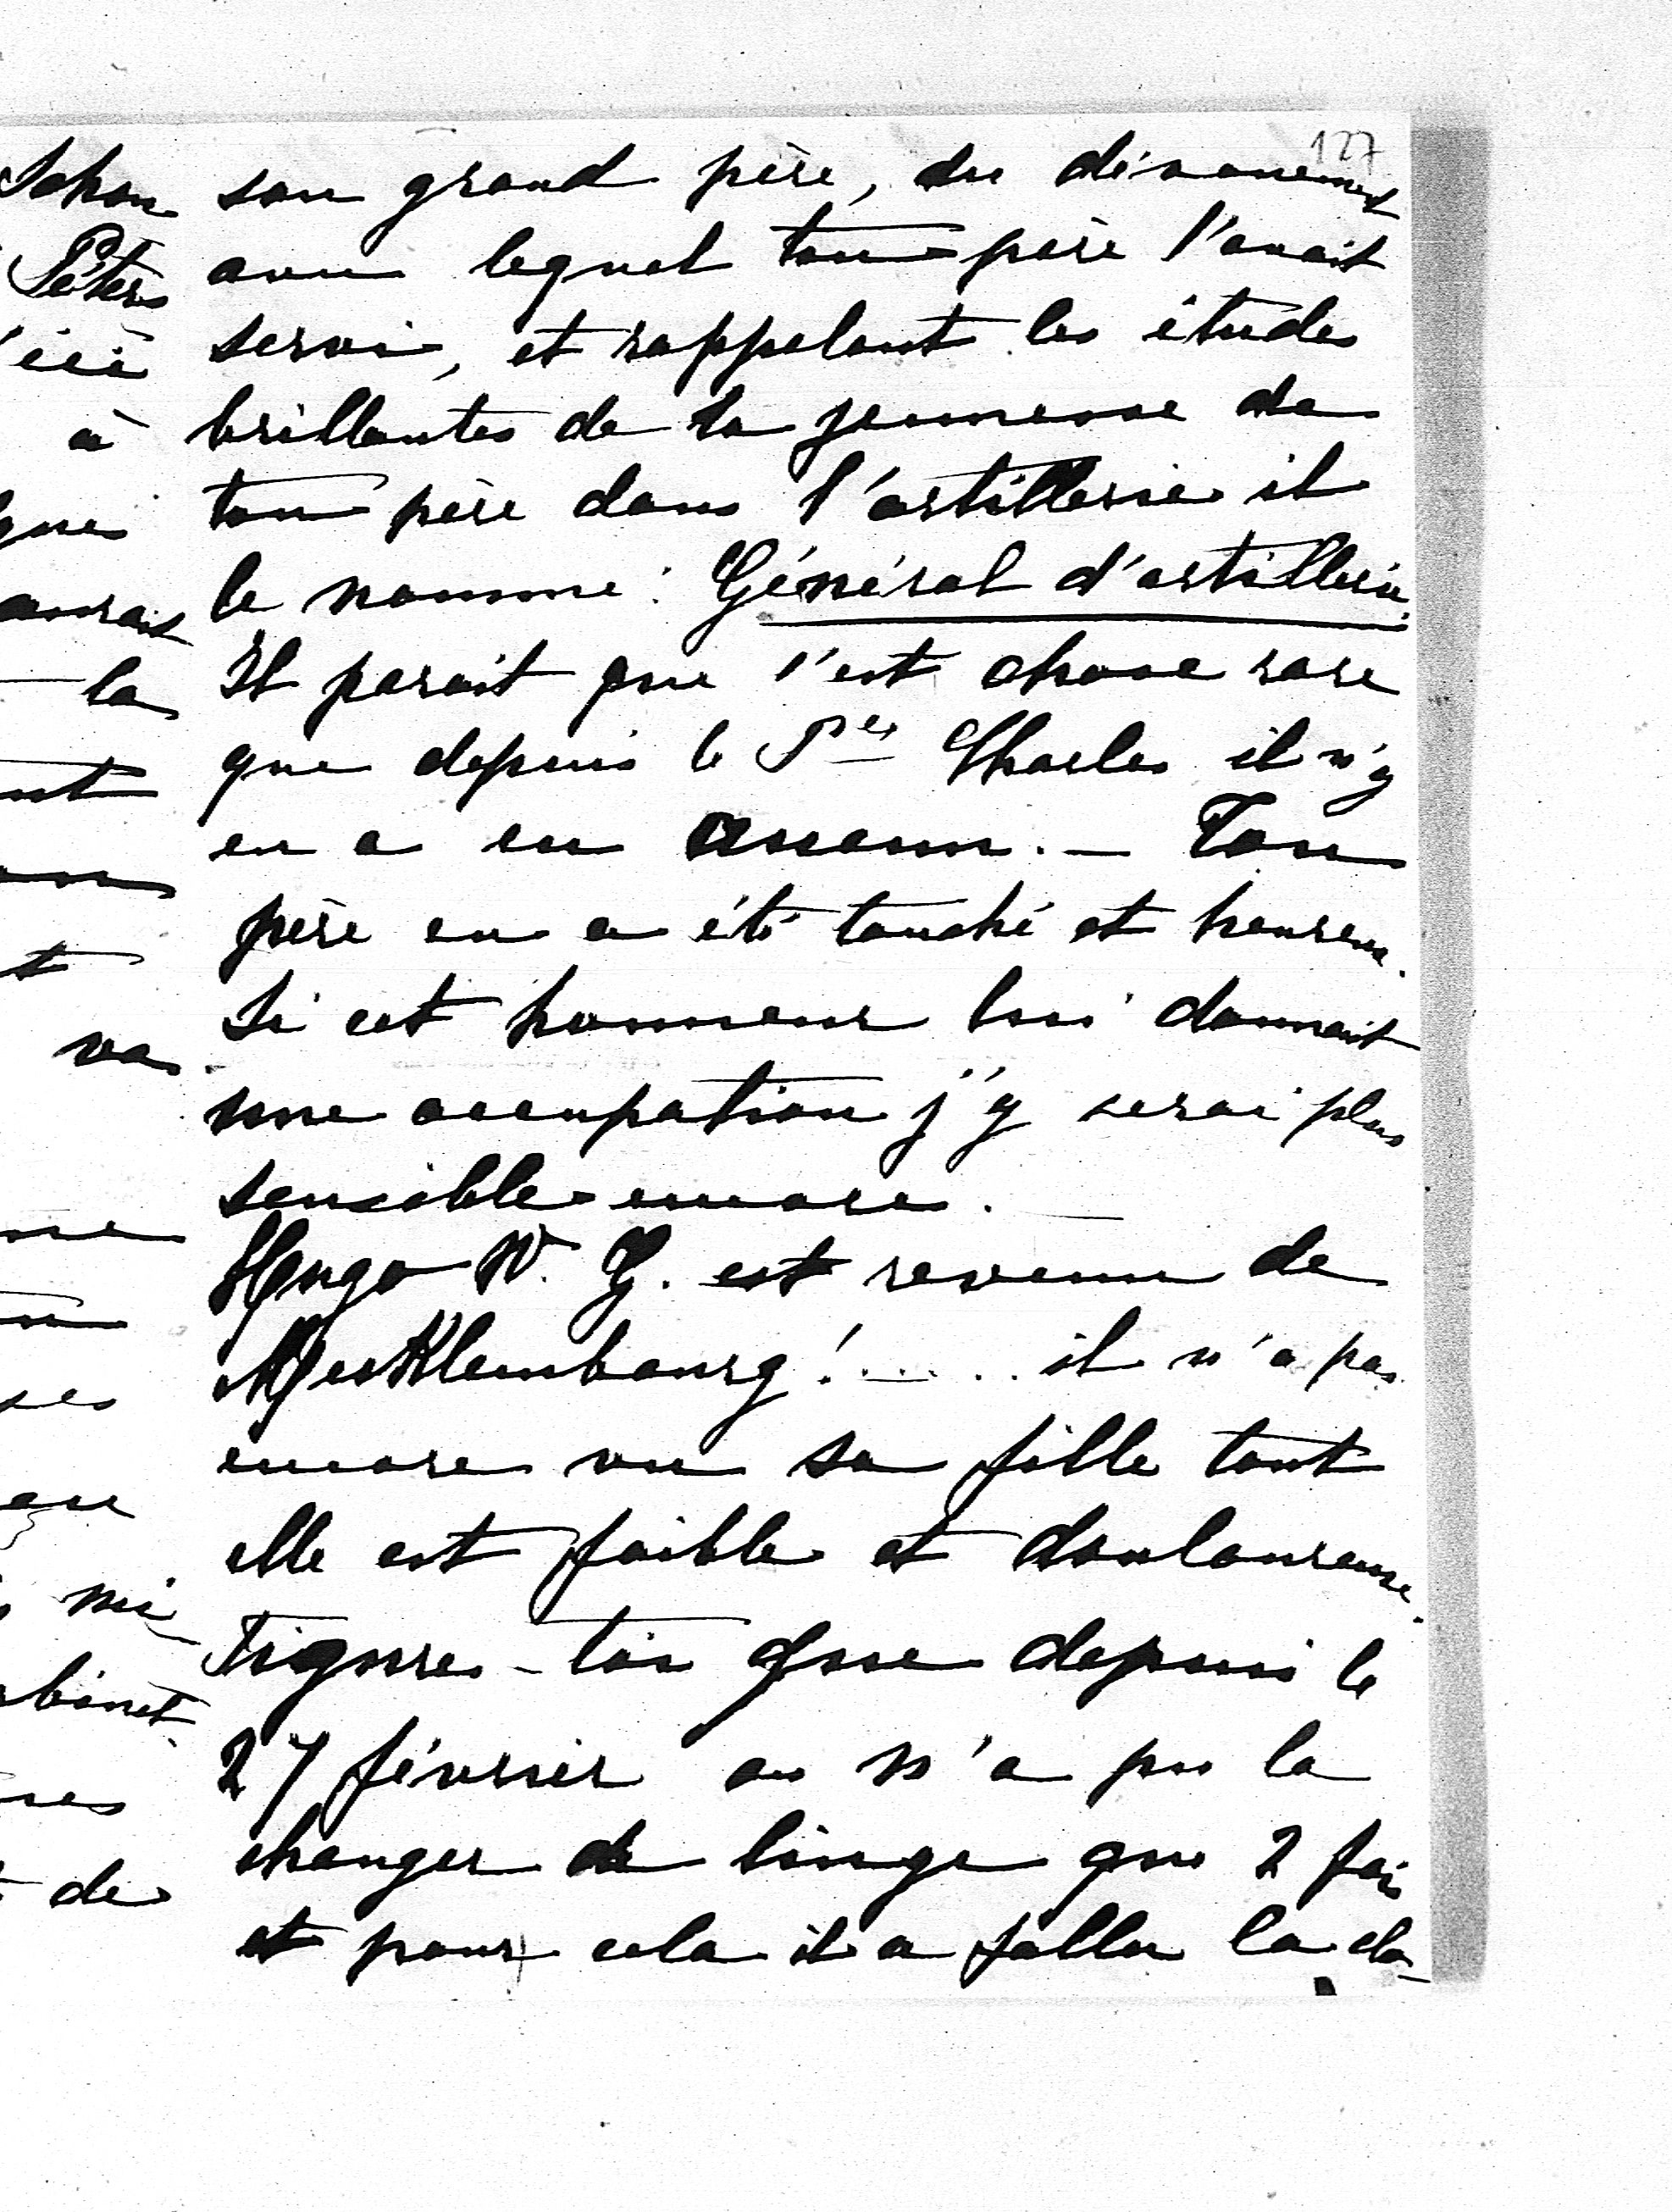 127
son grand père, du dévouement
avec lequel ton père l'avait
servi, et rappelant les études
brillantes de la jeunesse de
ton père dans l'artillerie il
le nomme : Général d'artillerie.
Il parait que c'est chose rare
que depuis le Pce Charles il n'y
en a eu aucun. — Ton
père en a été touché et heureux.
Si cet honneur lui donnait
une occupation j'y serai plus
sensible encore. —
Hugo W. G. est revenu de
Mecklembourg !..... il n'a pas
encore vu sa fille tant
elle est faible et douloureuse.
Figures-toi que depuis le
27 février on n'a pu la
changer de linge que 2 fois
et pour cela il a fallu la clo-
Péters
à
la
va
de